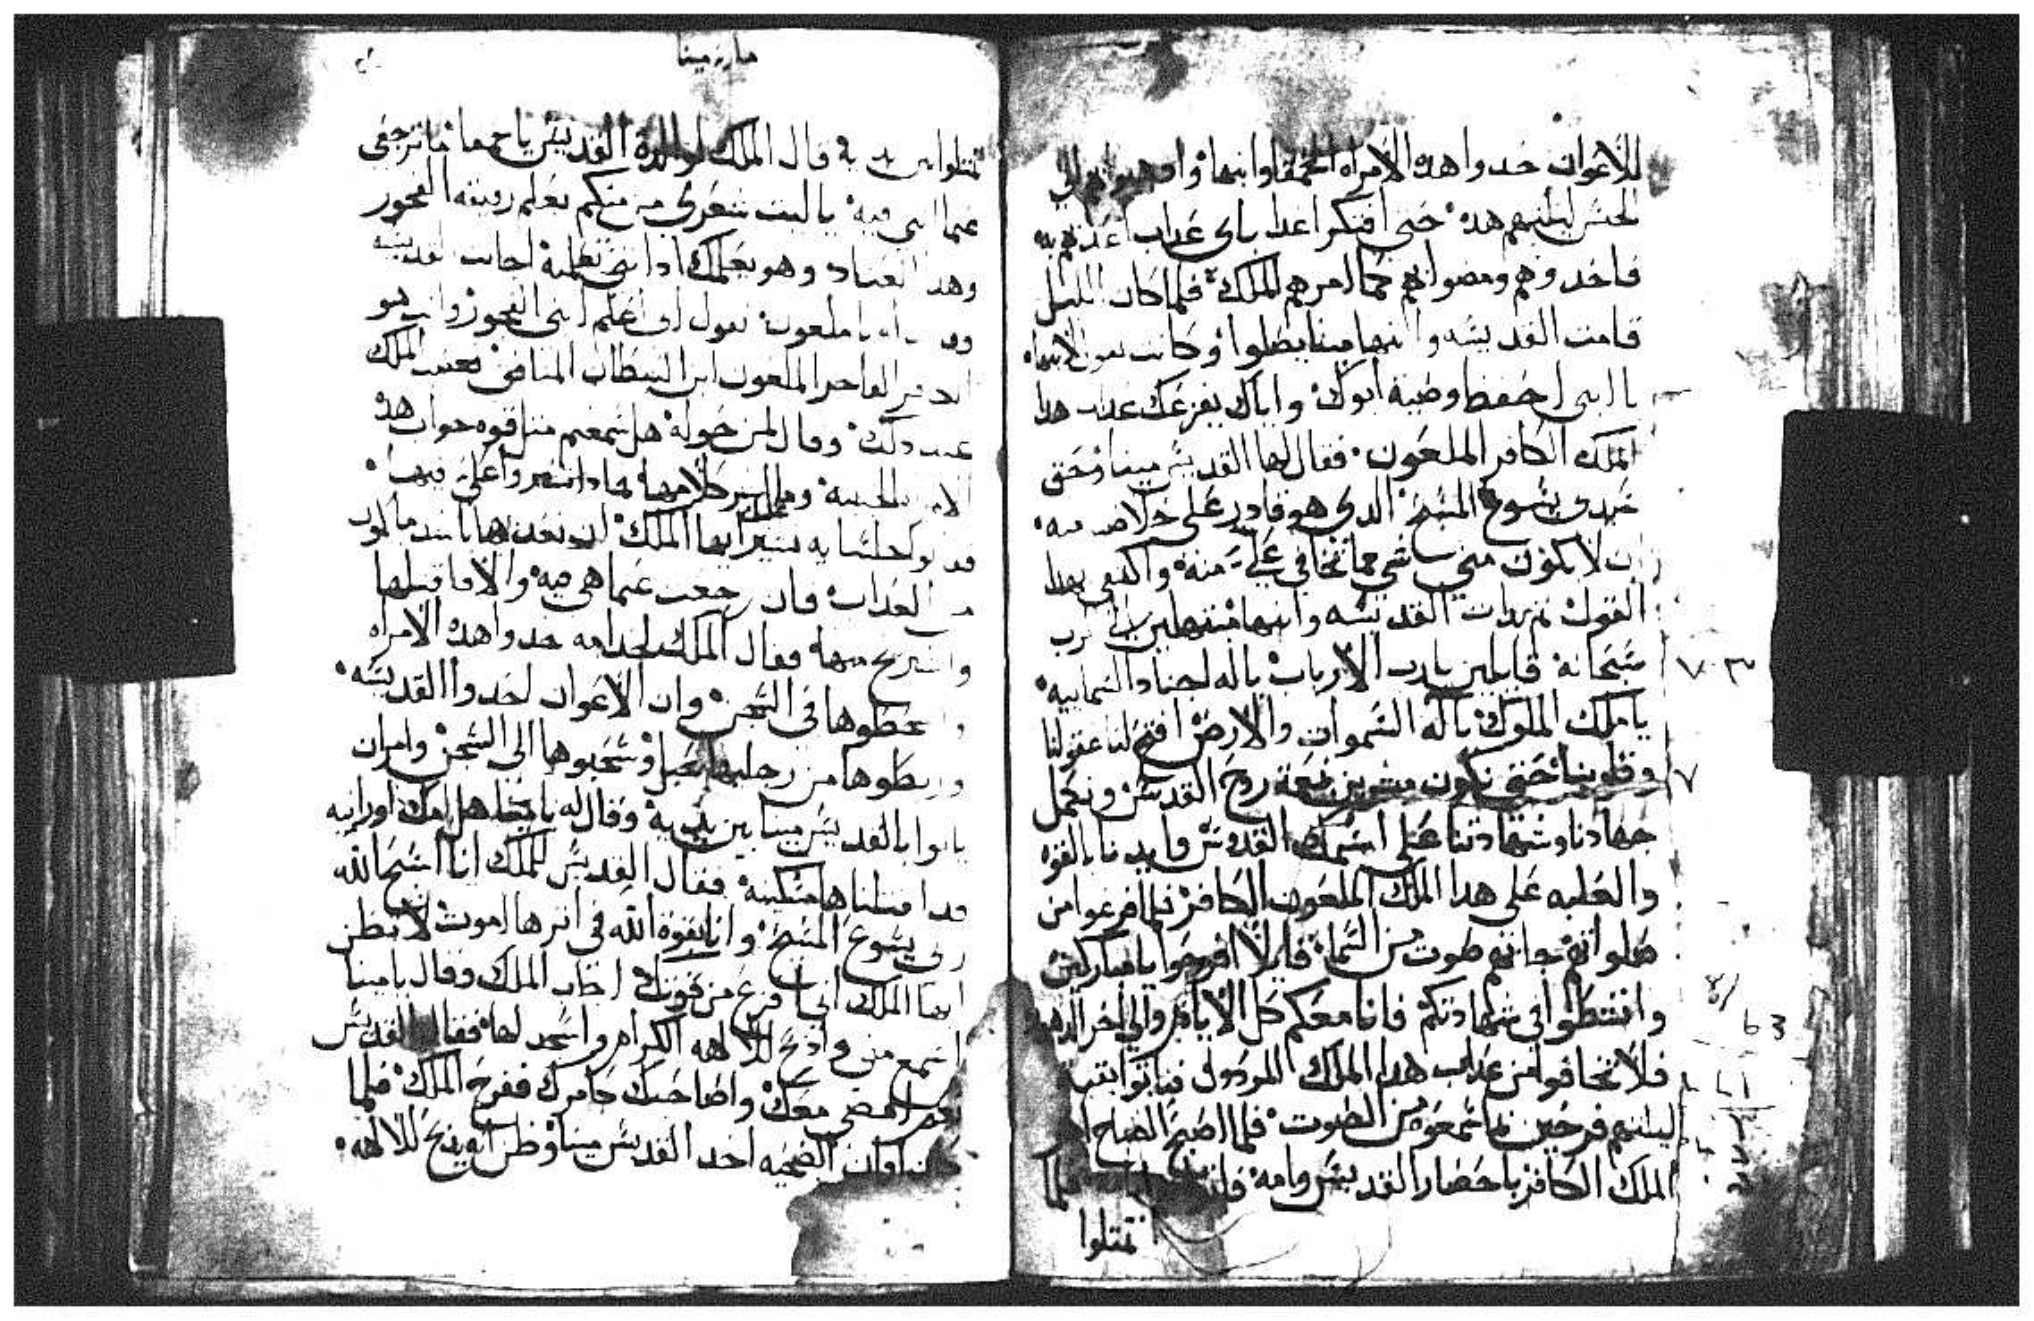 للاعوان خدوا هده الامراه الحمقا وابنها واودوهم الي
الحبس ليلتهم هده حتى افتكر غدا باى عداب اعدبهم به
فاخدوهم ومضوا بهم كما امرهم الملك فلما كان الليل
قامت القديسه وابنها مينا يصلوا وكانت تقول لابنها
يا ابنى احفظ وصية ابوك واياك يفزعك عداب هدا
الملك الكافر الملعون فقال لها القديس مينا وحق
سيدى يسوع المسيح الدى هو قادر على خلاصى منه
ان لا يكون منى شي مما تخافى علي منه واكتفى بهدا
القول تم بدات القديسه وابنها مبتهلين الى الرب
سبحانه قايلين يا رب الارباب يا اله اجناد السماييه
يا ملك الملوك يا اله السموات والارض افتح لنا عقولنا
وقلوبنا حتى نكون مستحقين نعمة روح القدس ونكمل
جهادنا وشهادتنا على اسمك القدوس وايدنا بالقوه
والغلبه على هدا الملك الملعون الكافر فلما فرغوا من
صلواتهم جاهم صوت من السما قايلا افرحوا يا مباركين
وانشطوا فى شهادتكم فانا معكم كل الايام والي اخر الدهر
فلا تخافوا من عداب هدا الملك المردول فباتوا بقية
ليلتهم فرحين بما سمعوه من الصوت فلما اصبح الصباح امر
الملك الكافر باحضار القديس وامه فلما
تمتلوا
مارى مينا
تمتلوا بين يديه قال الملك لوالدة القديس يا حمقا ما ترجعى
عما انتى فيه يا ليت شعرى من منكم يعلم رفيقه الفجور
وهدا العناد وهو يعلمك او انتى تعلميه اجابت القديسه
وقالت له يا ملعون تقول انى اعلم ابنى الفجور وانت هو
الكافر الفاجر الملعون ابن الشيطان المنافق فغضب الملك
عند دلك وقال لمن حوله هل سمعتم متل قوه جواب هده
الامراه الخبيثه وقلة كلامها بمادا تشيروا على فيها
فقالوا جلسايه نشير ايها الملك ان تعدبها باشد ما يكون
من العداب فان رجعت عما هى فيه والا فاقتلها
واستريح منها فقال الملك لخدامه خدوا هده الامراه
واحطوها فى السجن وان الاعوان اخدوا القديسه
وربطوها من رجليها بحبل وسحبوها الى السجن وامر ان
ياتوا بالقديس مينا بين يديه وقال له يا مينا هل امك اورانيه
قد اقتلناها مسكينه فقال القديس للملك انا اسبح الله
ربى يسوع المسيح وانا بقوة الله فى اثرها اموت لا تظن
ايها الملك انى افزع من قوتك اجاب الملك وقال يا مينا
اسمع منى وادبح للالهه الكرام واسجد لها فقال القديس
نعم امضى معك واصاحبك كامرك ففرح الملك فلما
كان اوان الضحيه اخد القديس مينا وظن انه يدبح للالهه